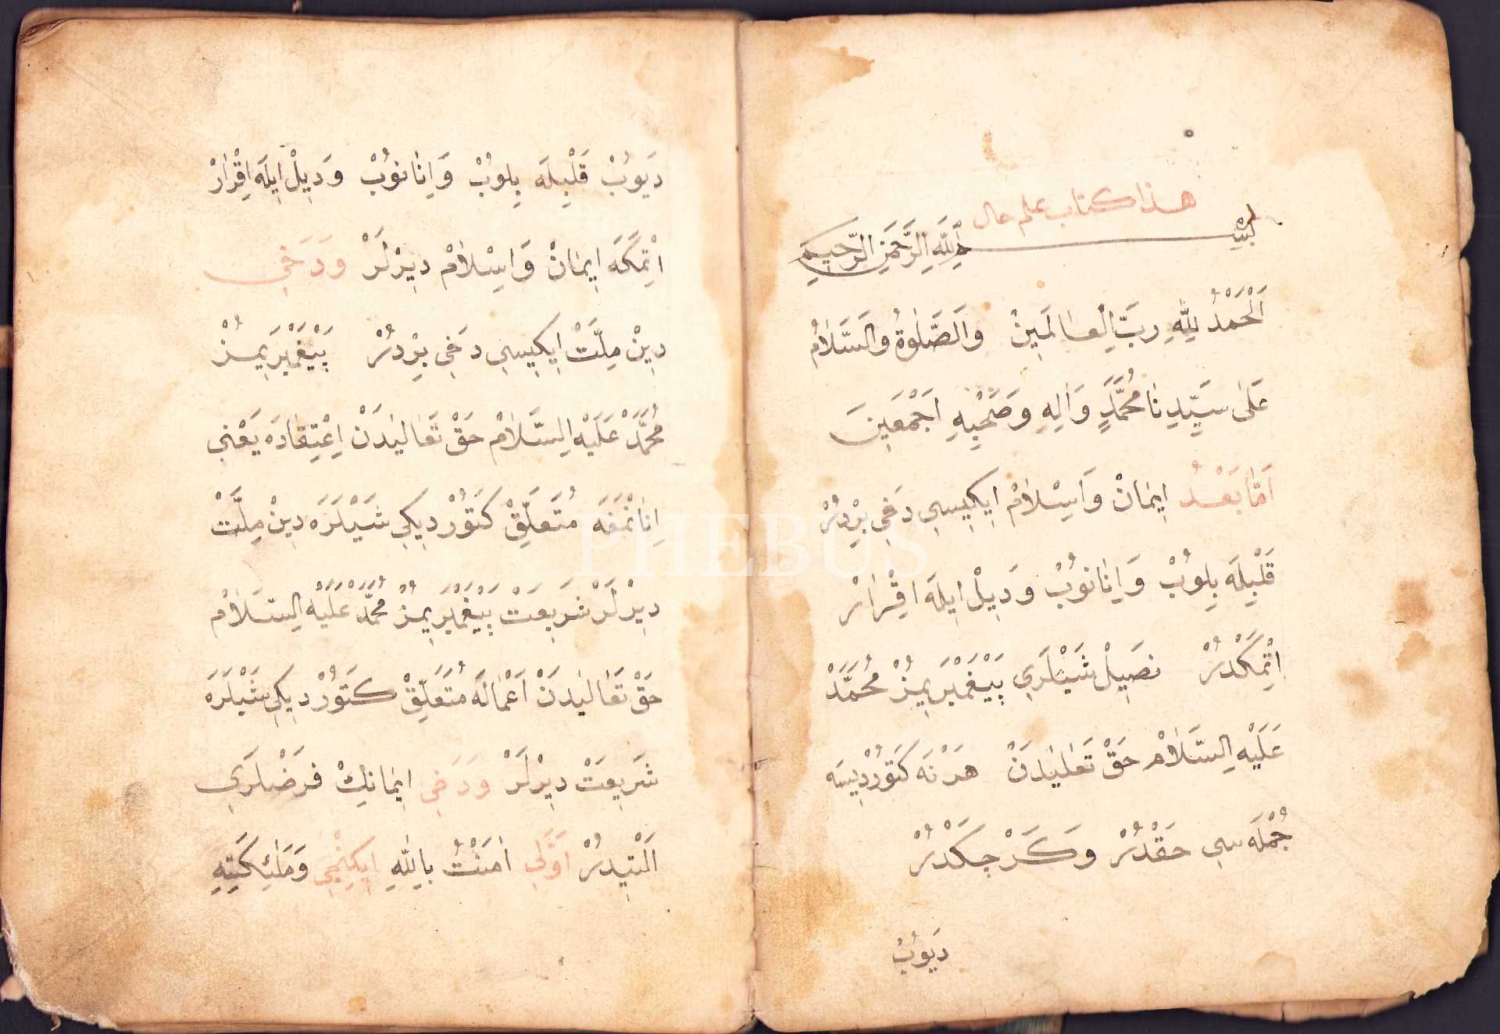 هذا كتاب علم حال
بسم الله الرحمن الرحيم
اَلْحَمْدُ لِلّٰهِ رَبِّ الْعَالَمِينْ وَالصَّلٰوةُ وَالسَّلَامُ
عَلٰى سَيِّدِنَا مُحَمَّدٍ وَاٰلِهِ وَصَحْبِهِ اَجْمَعِينَ
اَمَّا بَعْدُ اِيمَانْ وَاِسْلَامْ اِيكِيسِي دَخِي بِرْدُرْ
قَلْبِلَه بِلُوبْ وَاِنَانُوبْ وَدِيلْ اِيلَه اِقْرَارْ
اِتْمَكْدُرْ نَصِيلْ شَيْلَرِي پَيْغَمْبَرِيمِزْ مُحَمَّدْ
عَلَيْهِ السَّلَامْ حَقْ تَعَالٰيدَنْ هَرْ نَه كَتُورْدِيسَه
جُمْلَه سِي حَقْدُرْ وَكَرْجَكْدُرْ
دَيُوبْ
دَيُوبْ قَلْبِلَه بِلُوبْ وَاِنَانُوبْ وَدِيلْ اِيلَه اِقْرَارْ
اِتْمَكَه اِيمَانْ وَاِسْلَامْ دِيرْلَرْ وَدَخِي
دِينْ مِلَّتْ اِيكِيسِي دَخِي بِرْدُرْ پَيْغَمْبَرِيمُزْ
مُحَمَّدْ عَلَيْهِ السَّلَامْ حَقْ تَعَالٰيدَنْ اِعْتِقَادَه يَعْنِي
اِنَانْمَغَه مُتَعَلِّقْ كَتُورْدِيكِي شَيْلَرَه دِينْ مِلَّتْ
دِيرْلَرْ شَرِيعَتْ پَيْغَمْبَرِيمُزْ مُحَمَّدْ عَلَيْهِ السَّلَامْ
حَقْ تَعَالٰيدَنْ اَعْمَالَه مُتَعَلِّقْ كَتُورْدِيكِي شَيْلَرَه
شَرِيعَتْ دِيرْلَرْ وَدَخِي اِيمَانِكْ فَرْضْلَرِي
اَلْتِيدُرْ اَوَّلِي اٰمَنْتُ بِاللّٰهِ اِيكِنْجِي وَمَلٰئِكَتِهِ
PHEBUS